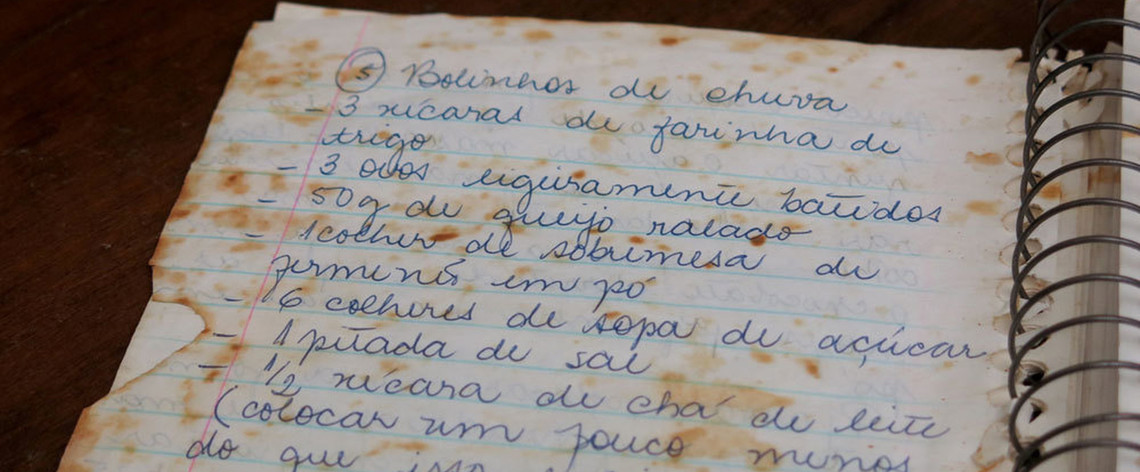 5 Bolinhos de chuva
- 3 xícaras de farinha de
trigo
- 3 ovos ligeiramente batidos
- 50g de queijo ralado
- 1 colher de sobremesa de
fermento em pó
- 6 colheres de sopa de açúcar
- 1 pitada de sal
- 1/2 xícara de chá de leite
(colocar um pouco menos
do que isso